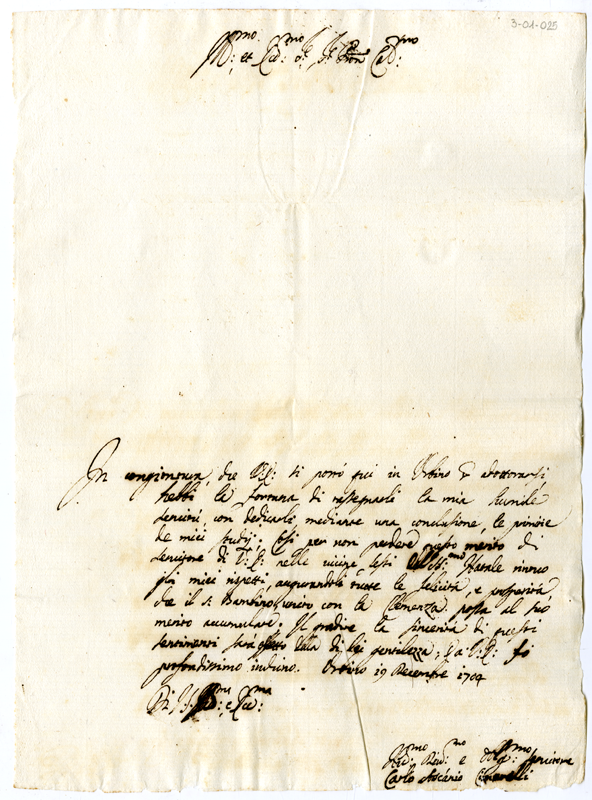 3-01-025
Ill:mo et Ecc:mo Sig.r Sig.r Pron Col:mo
In congiontura, che V.E: si portò qui in Urbino p adottorarsi,
hebbi la fortuna di rassegnarle la mia humile
servitù, con dedicarli mediante una conclusione, le primizie
de miei studij. Così per non perdere questo merito di
servitore di V.E: nelle vicine feste del SS:mo Natale rinovo
gli miei rispetti, augurandoli tutte le felicità, e prosperità,
che il S. Bambino, unito con la Clemenza possa al suo
merito accumulare. Il gradire la sincerità di questi
sentimenti sarà effetto della di lei gentilezza; e a V.E: fo
profondissimo inchino. Urbino 19 Decembre 1704
Di V.S. Ill:ma e Ecc:ma
Hu:mo Dev:mo e Oblig:mo servitore
Carlo Ascanio